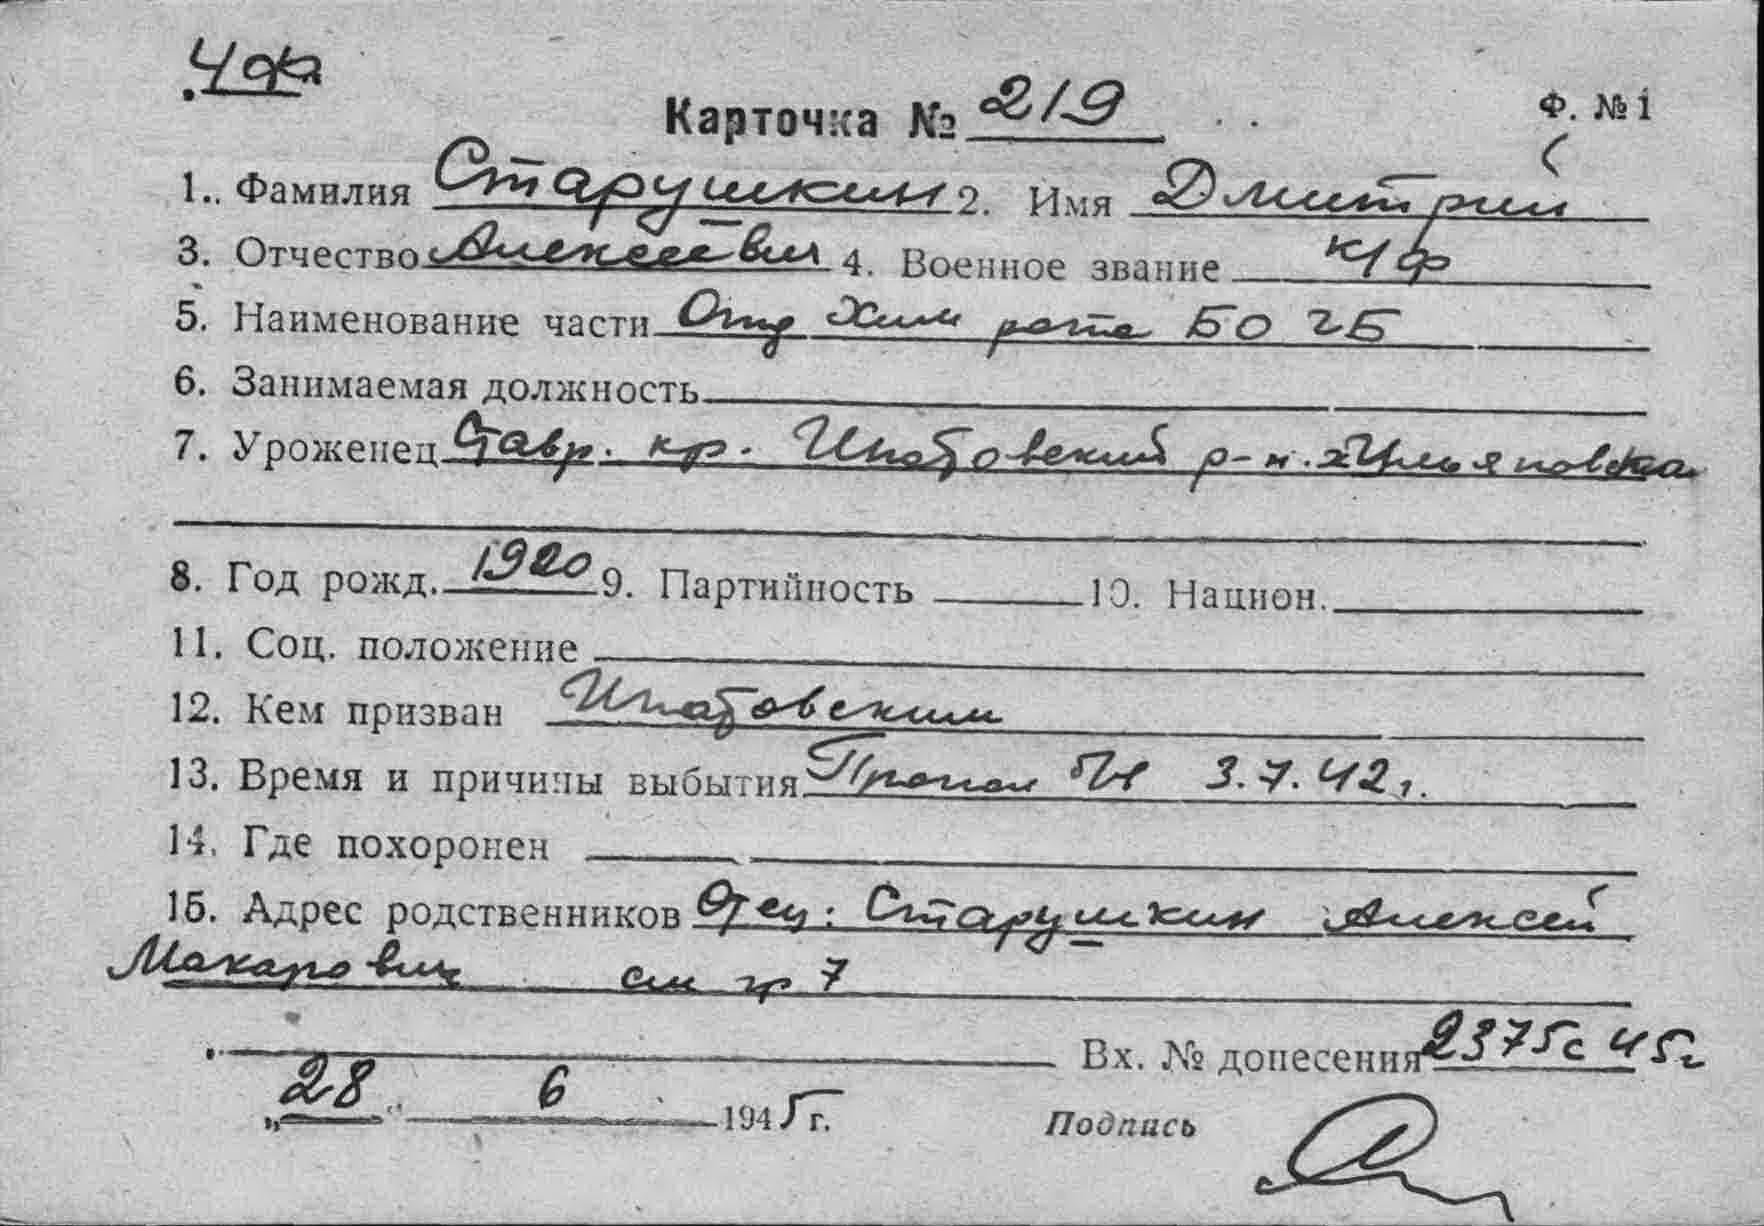 ЧФ
Карточка № 219 Ф. № 1
1. Фамилия Старушкин 2. Имя Дмитрий
3. Отчество Алексеевич 4. Военное звание к/ф
5. Наименование части Отд Хим рота БО ГБ
6. Занимаемая должность
7. Уроженец Ставр. кр. Ипатовский р-н. х Ульяновка
8. Год рожд. 1920 9. Партийность 10. Национ.
11. Соц. положение
12. Кем призван Ипатовским
13. Время и причины выбытия Пропал б/и 3.7.42г.
14. Где похоронен
15. Адрес родственников Отец: Старушкин Алексей
Макарович см гр 7
Вх. № донесения 2375с 45г
„28“ 6 1945 г. Подпись